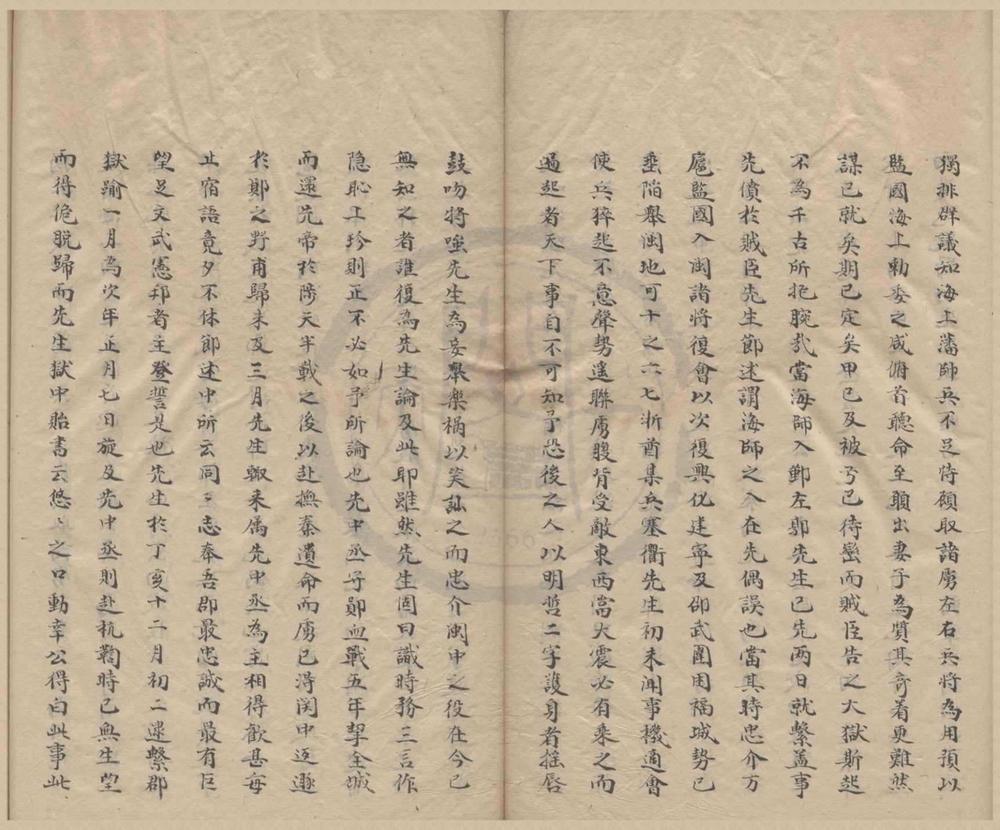 獨排群議知海上藩師兵不足恃頋取諸虜左右兵將為用預以
監國海上勅委之咸俯首聽命至願出妻子為質其奇着更難然
謀已就矣期已定矣甲已及被弓已待彎而賊臣告之大獄斯起
不為千古所扼腕哉當海師入鄞左郭先生已先兩日就繫盖事
先債於賊臣先生節述謂海師之入在先偶誤也當其時忠介方
扈監國入閩諸將復會以次復興化建寧及邵武圍困福城勢已
垂陷舉閩地可十之六七浙酋集兵塞衢先生初未聞事機適會
使兵猝起不意聲勢遥聯虜腹背受敵東西當大震必有来之而
過起者天下事自不可知予恐後之人以明哲二字護身者摇唇
鼓吻將嗤先生為妄舉樂禍以笑訕之而忠介閩中之役在今已
無知之者誰復為先生論及此耶雖然先生固曰識時務三言作
隐恥工珍則正不必如予所論也先中丞守鄖血戰五年挈全城
而還先帝於陟天半載之後以赴撫秦遺命而虜已淂関中迄遯
於鄖之野甫歸未及三月先生輙来属先中丞為主相得歡甚每
止宿語竟夕不休節述中所云同志奉吾郡最忠誠而最有巨
望足文武憲邦者主登誓是也先生於丁亥十二月初二逮繫郡
獄踰一月為次年正月七日旋及先中丞則赴杭鞫時已無生望
而得佹脱歸而先生獄中貽書云悠〻之口動幸公得白此事此